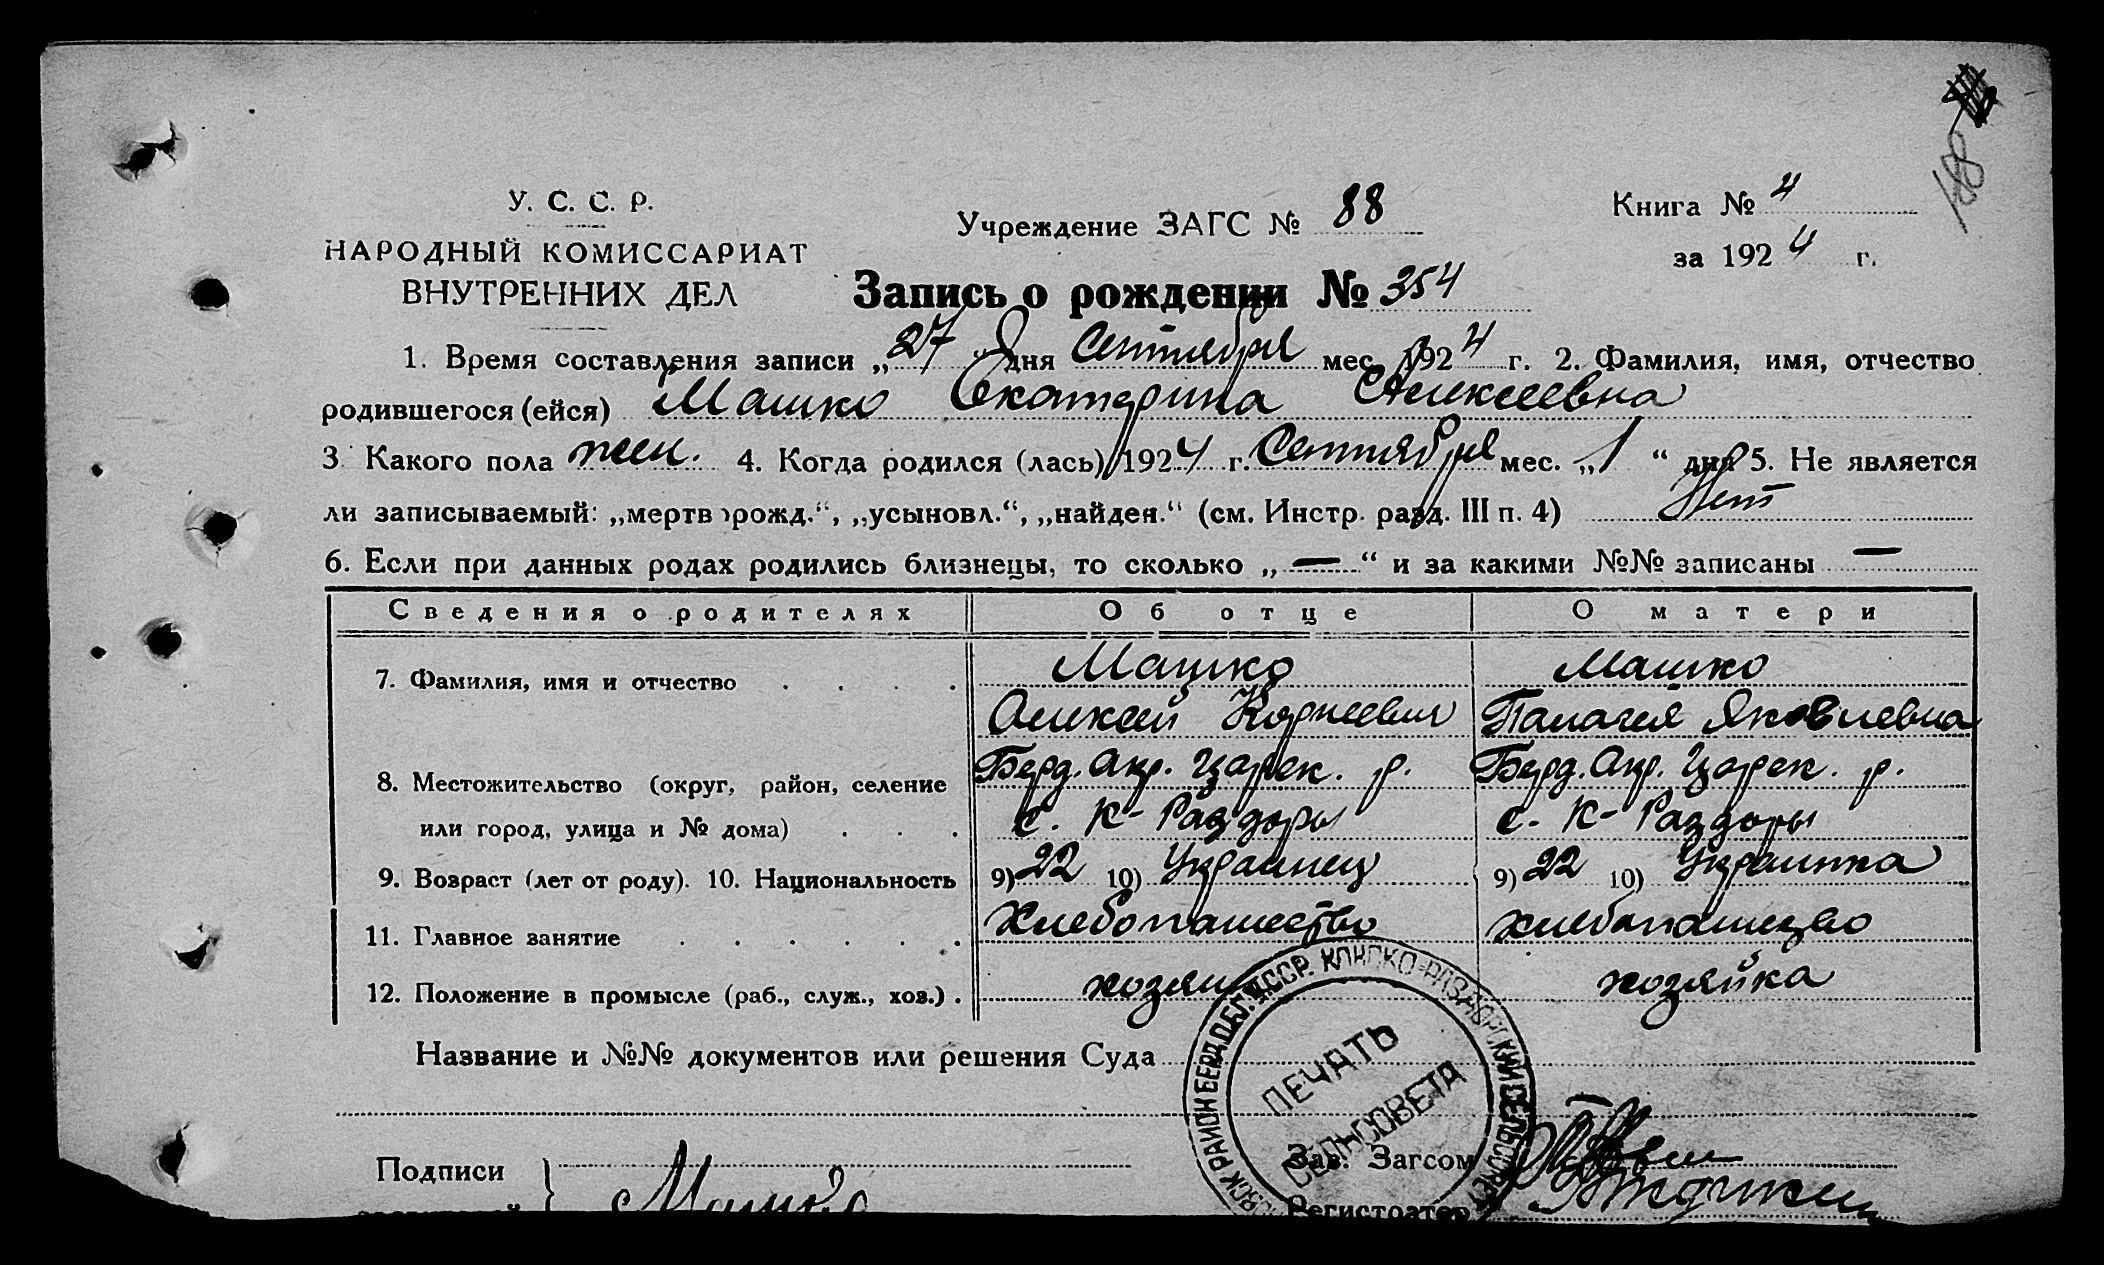 188
У. С. С. Р.
НАРОДНЫЙ КОМИССАРИАТ
ВНУТРЕННИХ ДЕЛ
Учреждение ЗАГС № 88
Книга № 4
за 1924 г.
Запись о рождении № 354
1. Время составления записи „27“ дня Сентября мес. 1924 г. 2. Фамилия, имя, отчество
родившегося (ейся) Машко Екатерина Алексеевна
3 Какого пола жен. 4. Когда родился (лась) 1924 г. Сентября мес. „1“ дня 5. Не является
ли записываемый: „мертворожд.“, „усыновл.“, „найден.“ (см. Инстр. разд. III п. 4) Нет
6. Если при данных родах родились близнецы, то сколько „—“ и за какими №№ записаны —
Сведения о родителях Об отце О матери
7. Фамилия, имя и отчество . . . . Машко Машко
Алексей Корнеевич Палагея Яковлевна
8. Местожительство (округ, район, селение Берд. окр. Царек. р. Берд. окр. Царек. р.
или город, улица и № дома) . . . с. К-Раздоры с. К-Раздоры
9. Возраст (лет от роду). 10. Национальность 9) 22 10) Украинец 9) 22 10) Украинка
11. Главное занятие . . . . . . Хлебопашество хлебопашество
12. Положение в промысле (раб., служ., хоз.) . хозяин хозяйка
Название и №№ документов или решения Суда
УССР. КОНСКО-РАЗДОРСКИЙ СЕЛЬСОВЕТ
РАЙОН БЕРД
ПЕЧАТЬ
СЕЛЬСОВЕТА
Подписи
Зав. Загсом
Машко
Регистратор